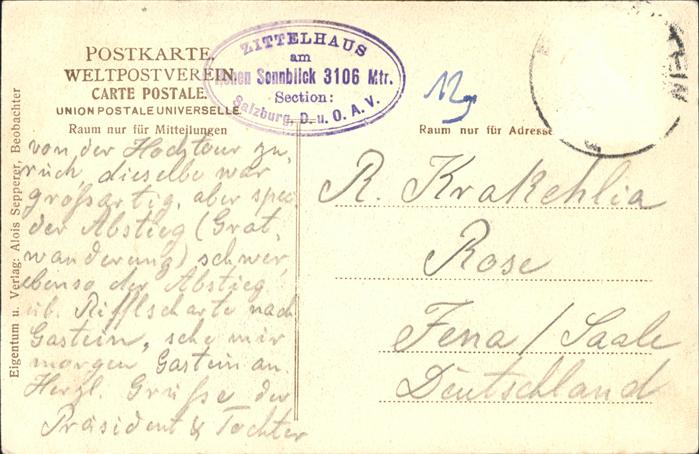 POSTKARTE.
WELTPOSTVEREIN.
CARTE POSTALE.
UNION POSTALE UNIVERSELLE.
Raum nur für Mitteilungen
ZITTELHAUS
am
Hohen Sonnblick 3106 Mtr.
Section:
Salzburg, D. u. O. A. V.
Raum nur für Adresse
Eigentum u. Verlag: Alois Sepperer, Beobachter
von der Hochtour zu-
rück, dieselbe war
großartig, aber spec.
der Abstieg (Grat,
wanderung) schwer,
ebenso der Abstieg
üb. Rifflscharte nach
Gastein, sehe mir
morgen Gastein an.
Herzl. Grüße der
Präsident & Tochter
R. Krakehlia
Rose
Jena / Saale
Deutschland